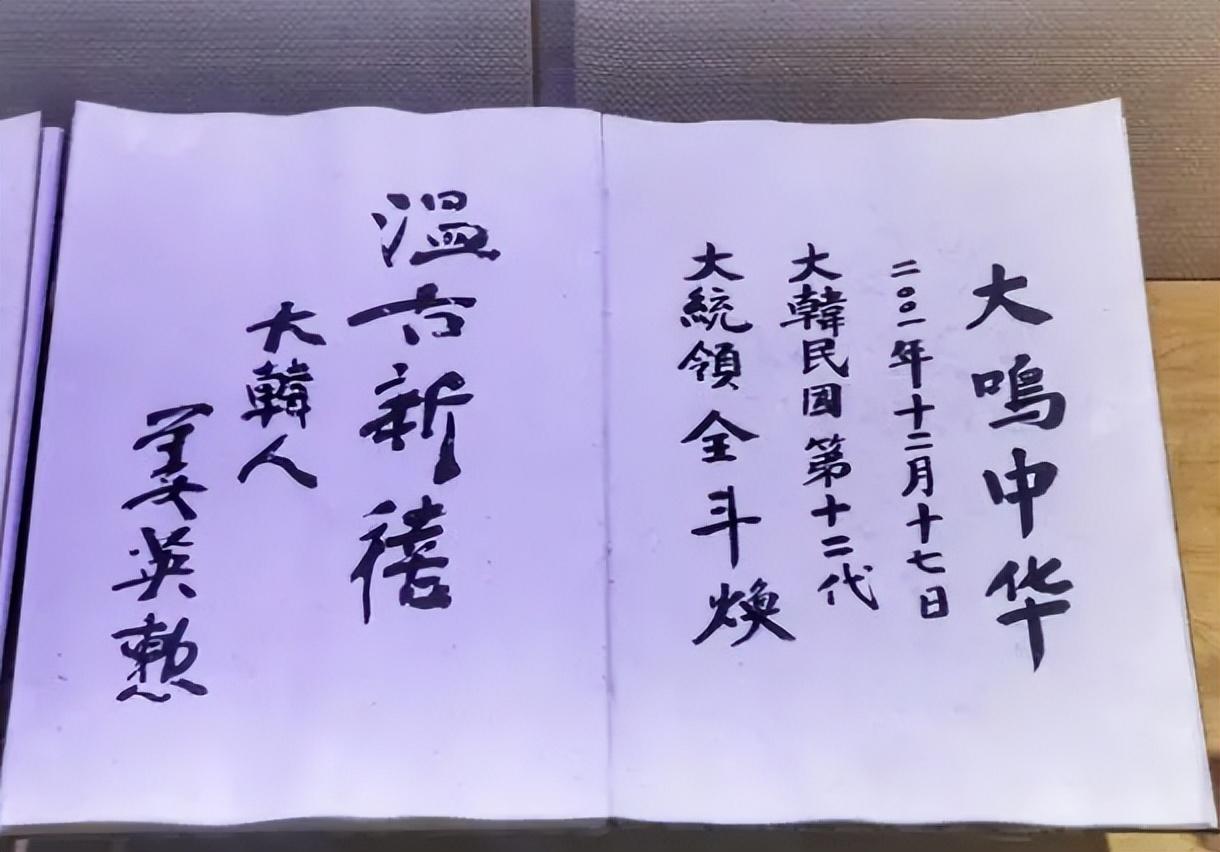 大鳴中华
二〇〇一年十二月十七日
大韓民国 第十二代
大統領 全斗煥
温古新禧
大韓人
姜英勳